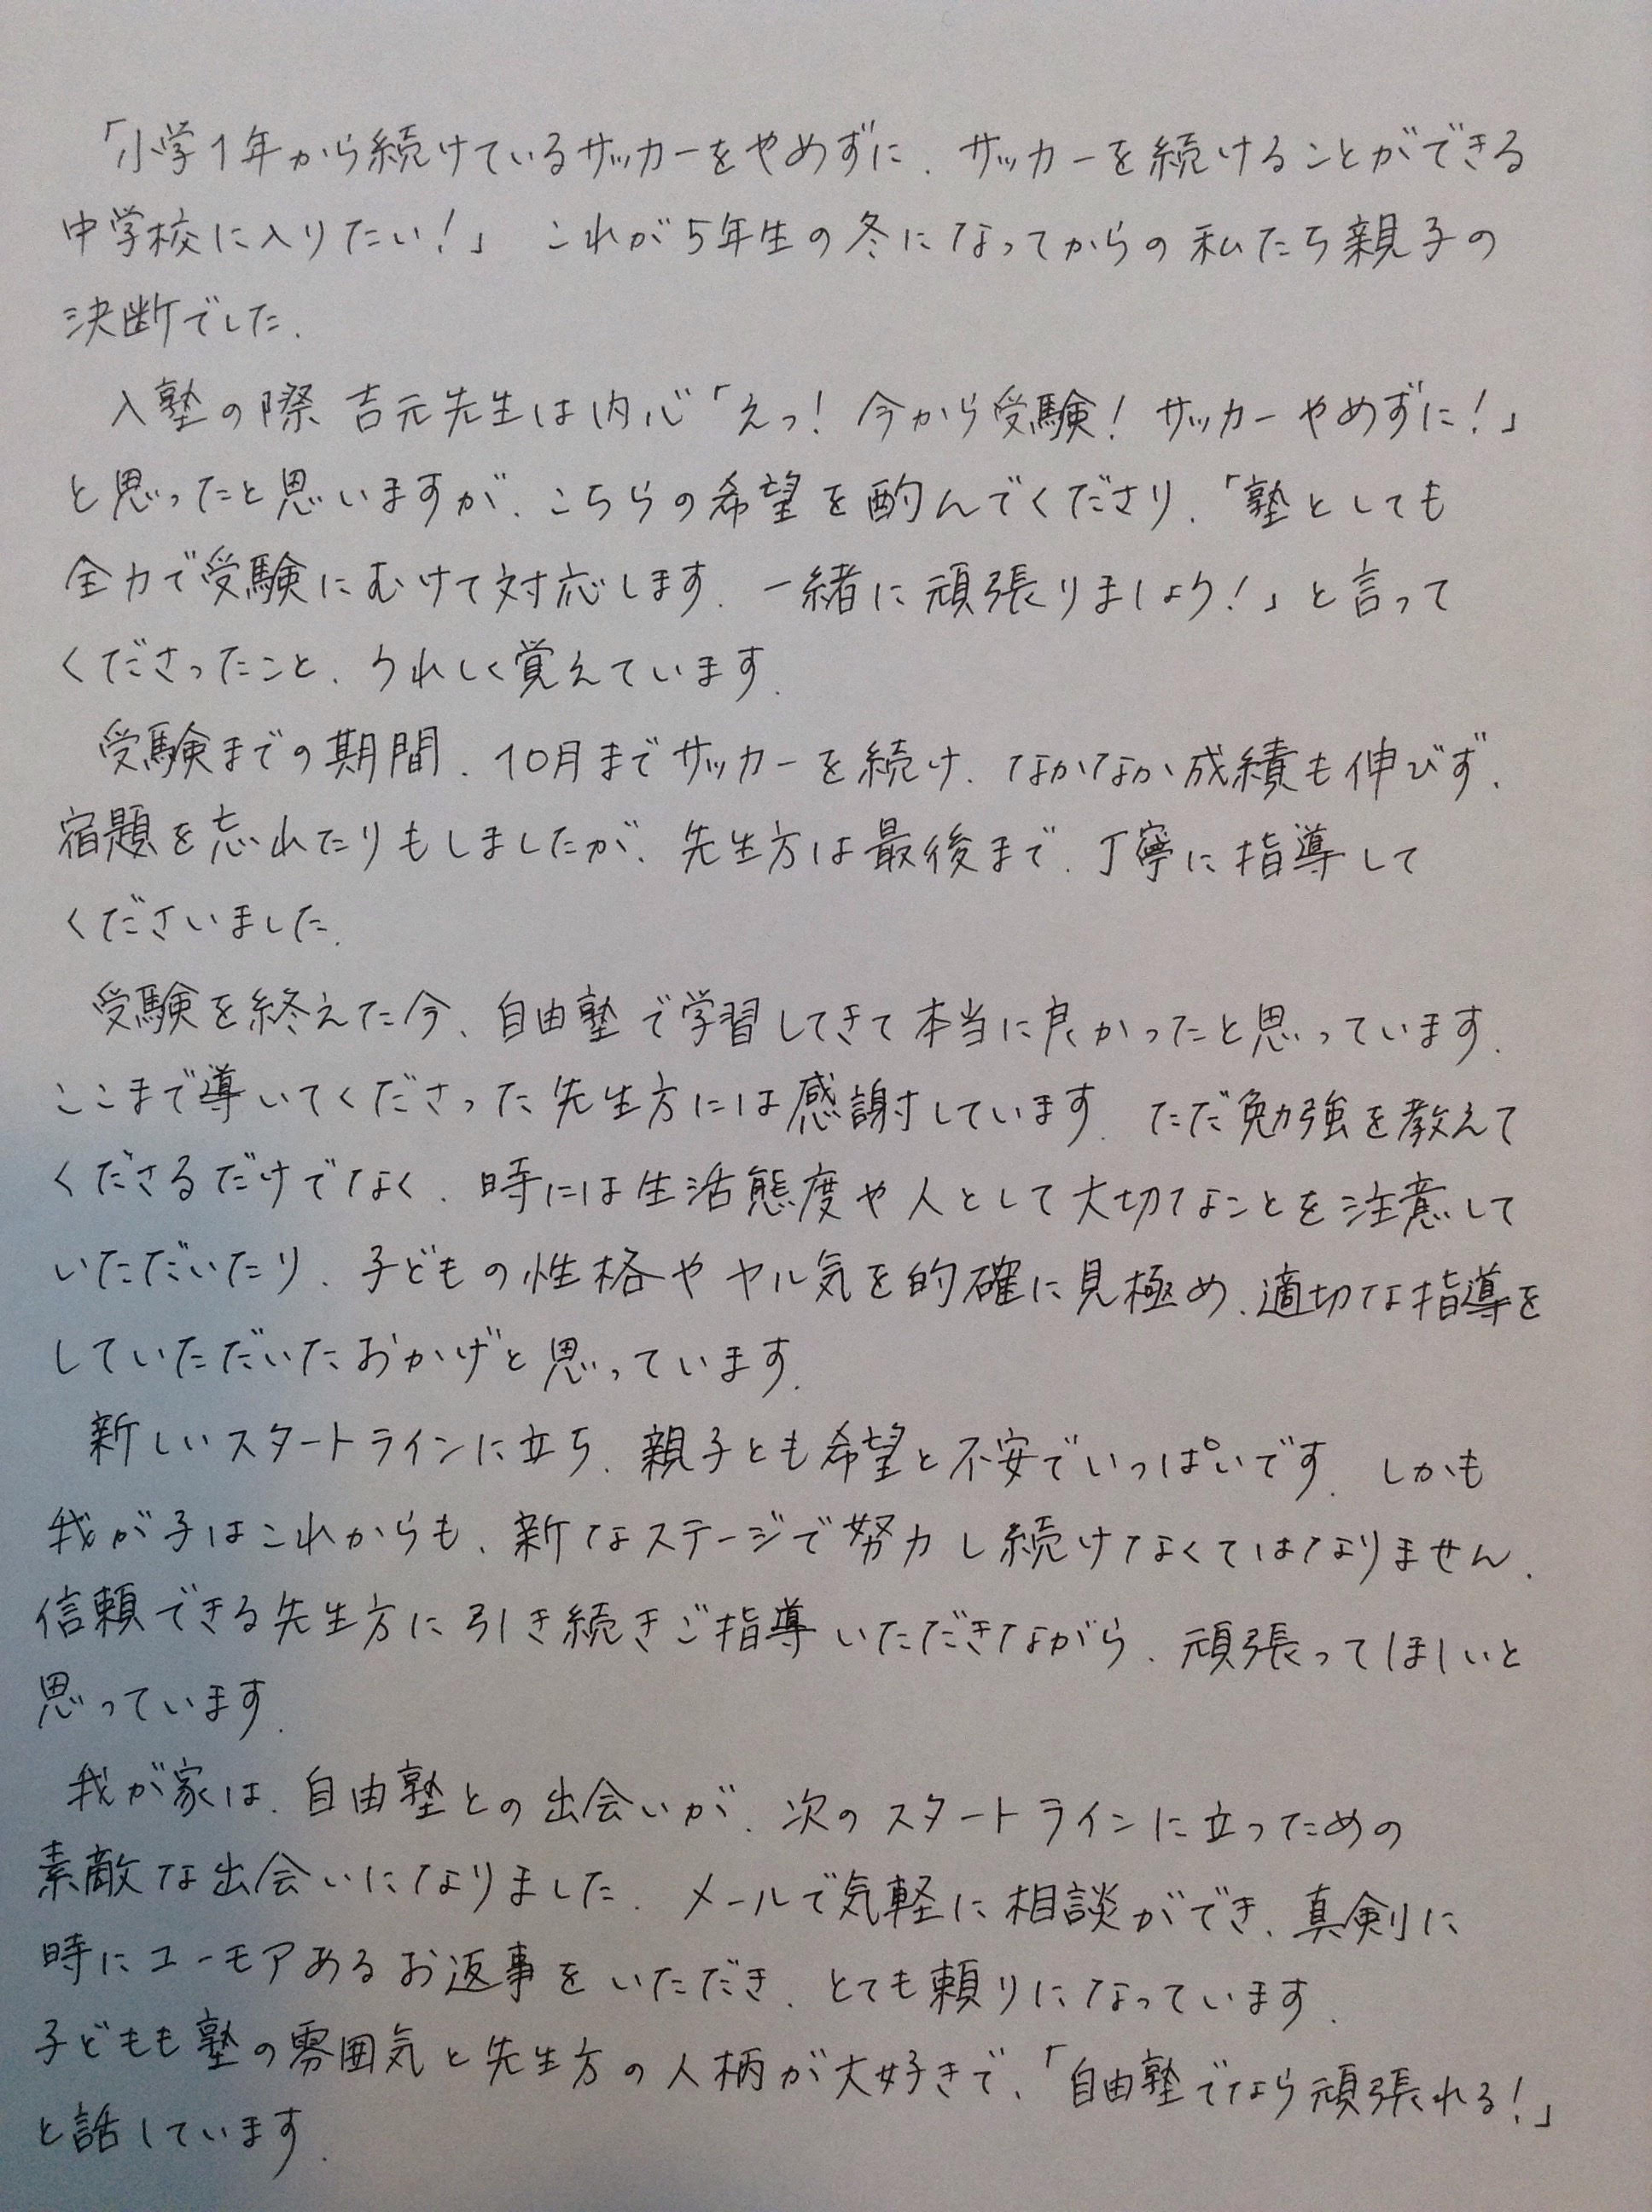 「小学1年から続けているサッカーをやめずに、サッカーを続けることができる
中学校に入りたい!」 これが5年生の冬になってからの私たち親子の
決断でした。
入塾の際 吉元先生は内心「えっ! 今から受験! サッカーやめずに!」
と思ったと思いますが、こちらの希望を酌んでくださり、「塾としても
全力で受験にむけて対応します。一緒に頑張りましょう!」と言って
くださったこと、うれしく覚えています。
受験までの期間、10月までサッカーを続け、なかなか成績も伸びず、
宿題を忘れたりもしましたが、先生方は最後まで、丁寧に指導して
くださいました。
受験を終えた今、自由塾で学習してきて本当に良かったと思っています。
ここまで導いてくださった先生方には感謝しています。ただ勉強を教えて
くださるだけでなく、時には生活態度や人として大切なことを注意して
いただいたり、子どもの性格やヤル気を的確に見極め、適切な指導を
していただいたおかげと思っています。
新しいスタートラインに立ち、親子とも希望と不安でいっぱいです。しかも
我が子はこれからも、新なステージで努力し続けなくてはなりません。
信頼できる先生方に引き続きご指導いただきながら、頑張ってほしいと
思っています。
我が家は、自由塾との出会いが、次のスタートラインに立つための
素敵な出会いになりました。メールで気軽に相談ができ、真剣に
時にユーモアあるお返事をいただき、とても頼りになっています。
子どもも塾の雰囲気と先生方の人柄が大好きで、「自由塾でなら頑張れる!」
と話しています。